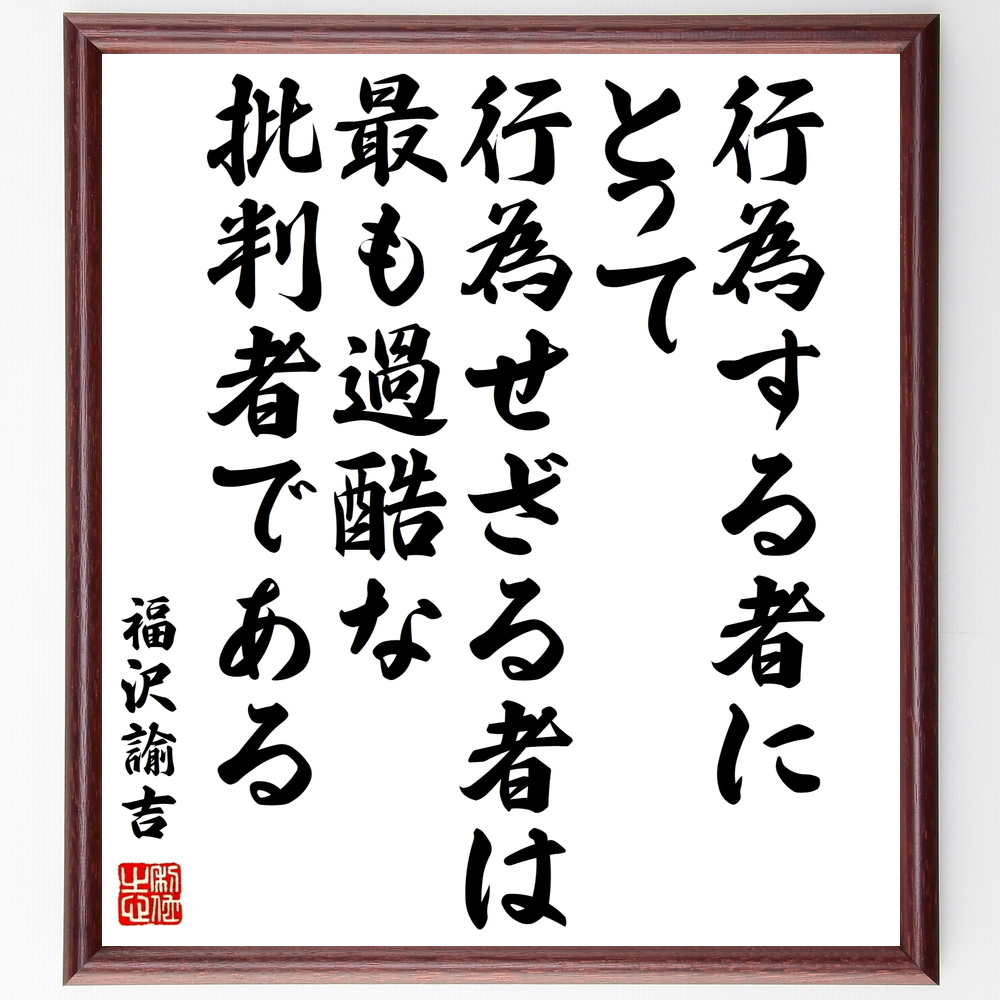 行為する者に
とって
行為せざる者は
最も過酷な
批判者である
福沢諭吉